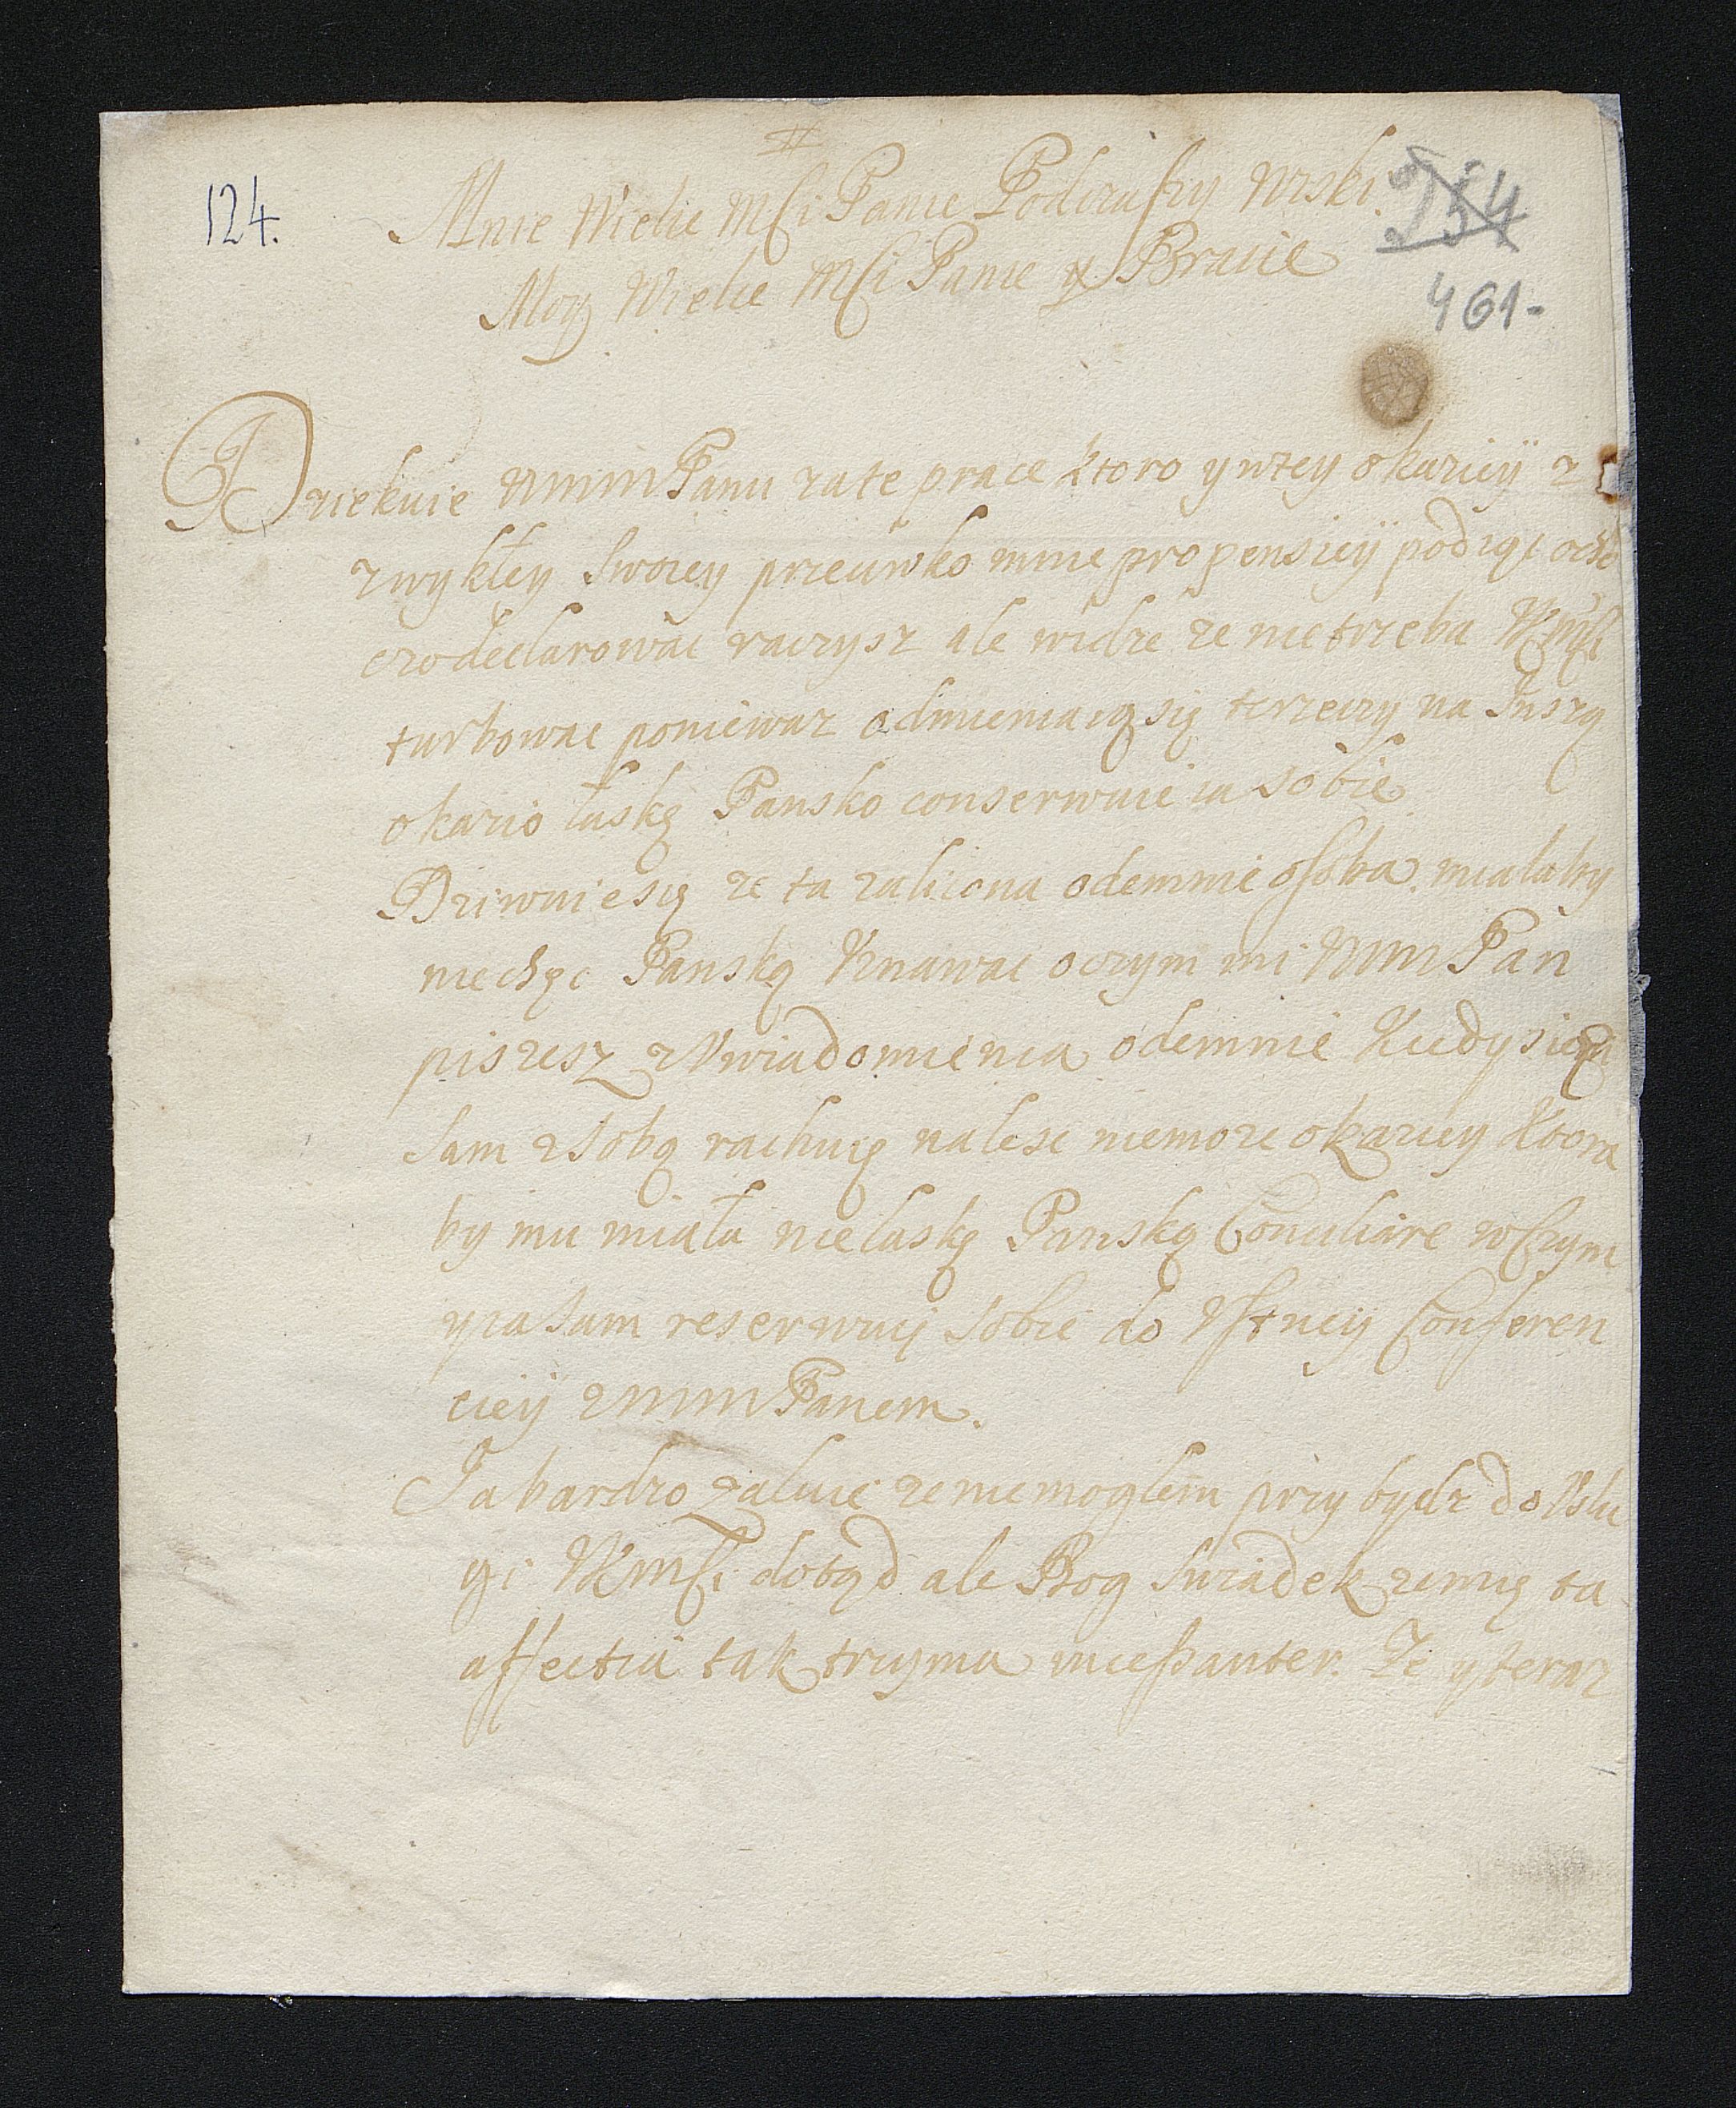 #
124.
Mnie Wielce Mſci Panie Podczaſzy Wiski.
Moy Wielce Mſci Panie y Bracie
154
461.
Dziekuie WMM Panu zate prace ktoro y wtey okaziey z
zwykłey Swoiey przeciwko mnie propensiey podiąc ocho
czo declarowac raczysz ale widze ze nie trzeba WMſci
turbowac poniewaz odmieniaią się te rzeczy na Inszą
okazio łaskę Pansko conserwuie ia sobie
Dziwuie się ze ta zalicona odemnie oſoba miałaby
niechęc Panską Vznawac oczym mi WMM Pan
piszesz z Vwiadomienia odemnie Kiedy się
Sam z Sobą rachuię nalesc niemoze okaziey Ktora
by mu miała nielaskę Panską Conciliare w Czym
y ia Sam reserwuię Sobie do Vſtney Conferen
ciey z WMM Panem.
Ja bardzo załuie ze niemoglem przybydz do Vslu
gi WMſci dotąd ale Bog Swiadek ze mię ta
affectia tak trzyma inceſsanter. Ze y teraz